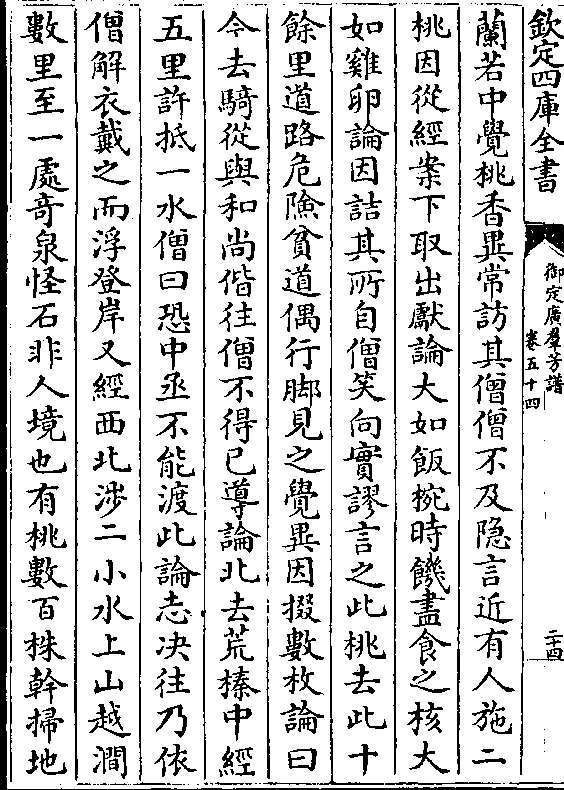 欽定四庫全書
御定廣羣芳譜
卷五十四
二十四
蘭若中覺桃香異常訪其僧僧不及隐言近有人施二
桃因從經案下取出獻論大如飯椀時饑盡食之核大
如雞卵論因詰其所自僧笑向實謬言之此桃去此十
餘里道路危險貧道偶行脚見之覺異因掇數枚論曰
今去騎從與和尚偕往僧不得已導論北去荒榛中經
五里許抵一水僧曰恐中丞不能渡此論志决往乃依
僧解衣戴之而浮登岸又經西北涉二小水上山越澗
數里至一處奇泉怪石非人境也有桃數百株幹掃地